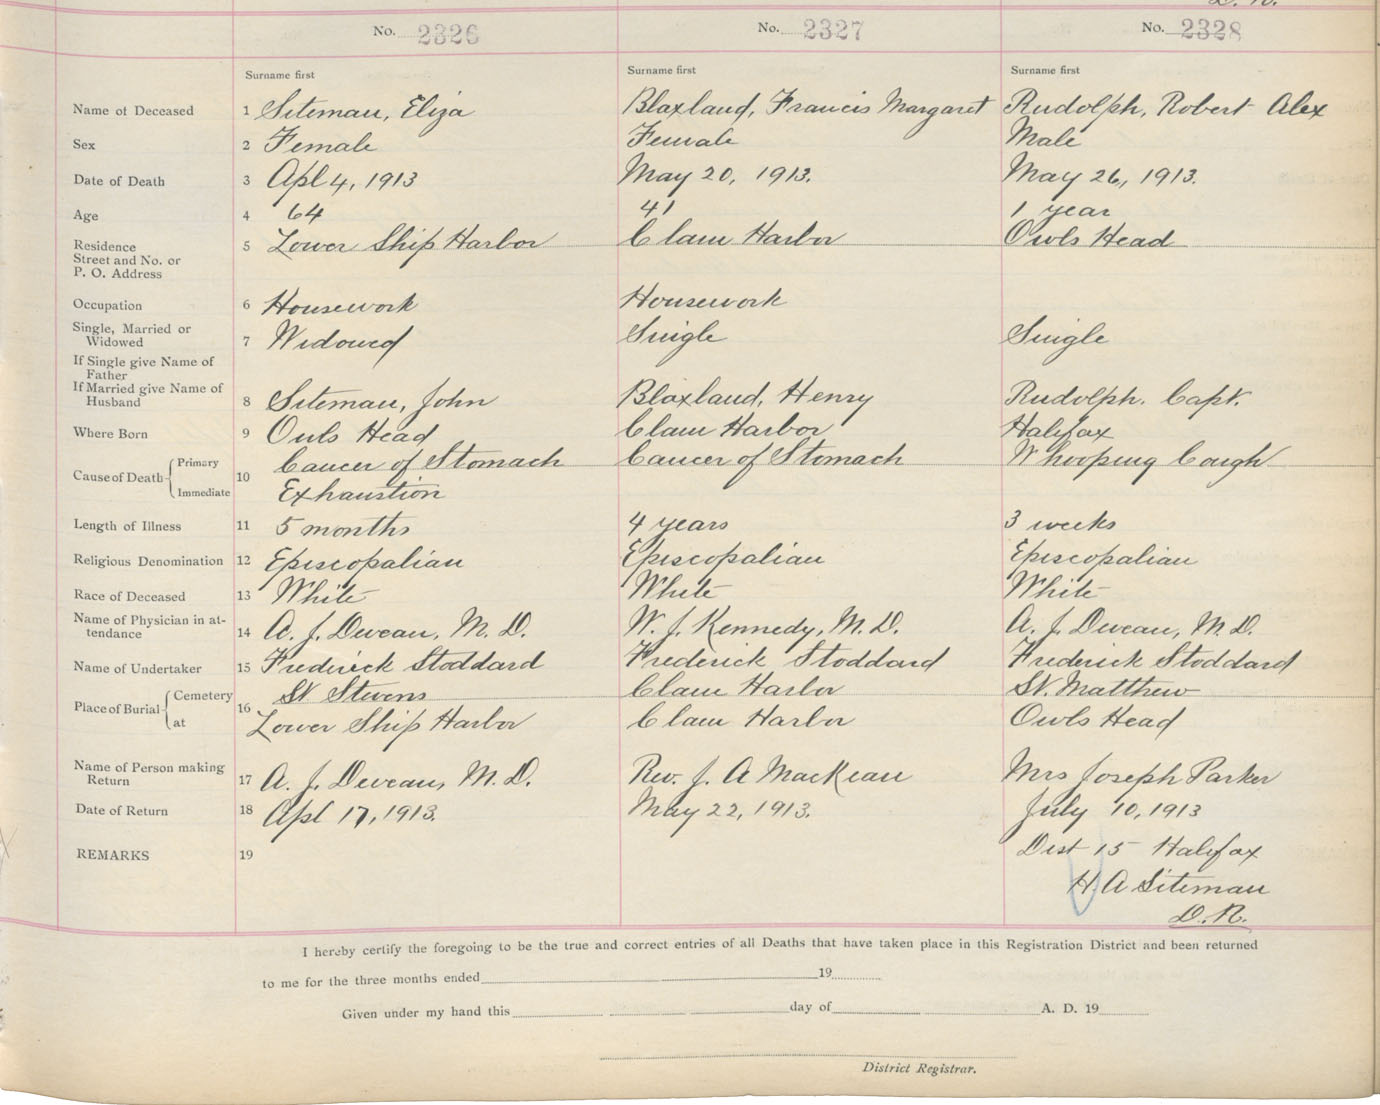 D. R.
No. 2326 No. 2327 No. 2328
Surname first Surname first Surname first
Name of Deceased 1 Siteman, Eliza Blaxland, Francis Margaret Rudolph, Robert Alex
Sex 2 Female Female Male
Date of Death 3 Apl 4, 1913 May 20, 1913. May 26, 1913.
Age 4 64 41 1 year
Residence 5 Lower Ship Harbor Clam Harbor Owls Head
Street and No. or
P. O. Address
Occupation 6 Housework Housework
Single, Married or
Widowed 7 Widowed Single Single
If Single give Name of
Father
If Married give Name of
Husband 8 Siteman, John Blaxland, Henry Rudolph. Capt.
Where Born 9 Owls Head Clam Harbor Halifax
Cause of Death Primary 10 Cancer of Stomach Cancer of Stomach Whooping Cough
Immediate Exhaustion
Length of Illness 11 5 months 4 years 3 weeks
Religious Denomination 12 Episcopalian Episcopalian Episcopalian
Race of Deceased 13 White White White
Name of Physician in at-
tendance 14 A. J. Deveau, M. D. W. J. Kennedy, M. D. A. J. Deveau, M. D.
Name of Undertaker 15 Frederick Stoddard Frederick Stoddard Frederick Stoddard
Place of Burial Cemetery 16 St Stevens Clam Harbor St. Matthew
at Lower Ship Harbor Clam Harbor Owls Head
Name of Person making
Return 17 A. J. Deveau, M. D. Rev. J. A MacKean Mrs Joseph Parker
Date of Return 18 Apl 17, 1913. May 22, 1913. July 10, 1913
REMARKS 19 Dist 15 Halifax
H A Siteman
D. R.
I hereby certify the foregoing to be the true and correct entries of all Deaths that have taken place in this Registration District and been returned
to me for the three months ended 19
Given under my hand this day of A. D. 19
District Registrar.